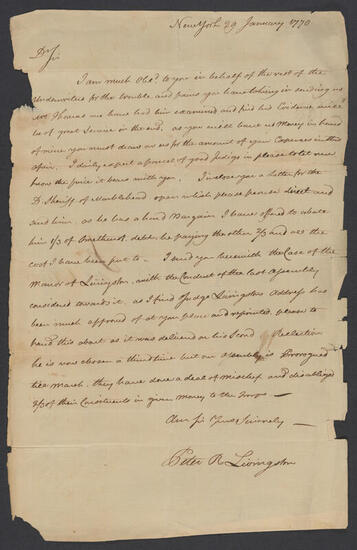 New York 29 January 1770
Dr Sir
I am much Obd. to you in behalf of the rest of the
Underwriters for the trouble and pains you have taking in sending us
Mr Thomas we have had him examined and find his Evidence will
be of great Service in the end, as you must have no Money in hand
of mine you must draw on us for the amount of your Expences in this
Affair. I daily expect a parcel of good potash in please to let me
know the price it bears with you. I inclose you a letter for the
D. Sheriff of Marblehead open which please peruse direct and
send him, as he has a hard Bargain I have offerd to abate
him 1/3 of debt he paying the other 2/3 and all the
Cost I have been put to — I send you herewith the Case of the
Manor of Livingston, with the Conduct of the last Assembly
considered towards it, as I find Judge Livingstons Address has
been much approved of at your place and reprinted, please to
hand this about as it was delivered on his Second Reelection
he is now chosen a third time but our Assembly is Prorogued
till March. they have done a deal of mischief and disobliged
of their Constituents in given money to the Troops —
Am Sir Yours Sincerely —
Peter R Livingston